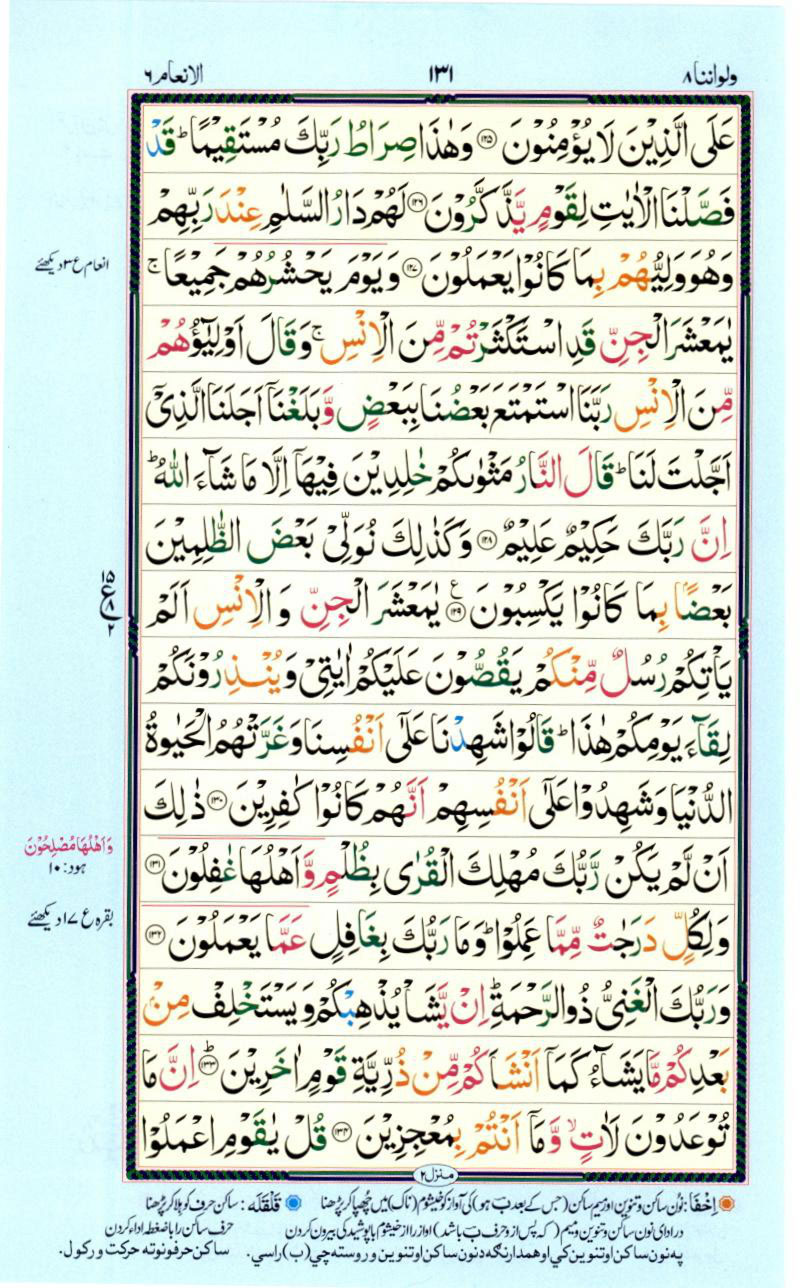 ولواننا ٨ ١٣١ الانعام ٦
عَلَى الَّذِيْنَ لَا يُؤْمِنُوْنَ ۝١٢٥ وَهٰذَا صِرَاطُ رَبِّكَ مُسْتَقِيْمًا ؕ قَدْ
فَصَّلْنَا الْاٰيٰتِ لِقَوْمٍ يَّذَّكَّرُوْنَ ۝١٢٦ لَهُمْ دَارُ السَّلٰمِ عِنْدَ رَبِّهِمْ
وَهُوَ وَلِيُّهُمْ بِمَا كَانُوْا يَعْمَلُوْنَ ۝١٢٧ وَيَوْمَ يَحْشُرُهُمْ جَمِيْعًا ۚ
انعام ع ٣ دیکھئے
يٰمَعْشَرَ الْجِنِّ قَدِ اسْتَكْثَرْتُمْ مِّنَ الْاِنْسِ ۚ وَقَالَ اَوْلِيٰٓؤُهُمْ
مِّنَ الْاِنْسِ رَبَّنَا اسْتَمْتَعَ بَعْضُنَا بِبَعْضٍ وَّبَلَغْنَآ اَجَلَنَا الَّذِيْٓ
اَجَّلْتَ لَنَا ؕ قَالَ النَّارُ مَثْوٰىكُمْ خٰلِدِيْنَ فِيْهَآ اِلَّا مَا شَآءَ اللّٰهُ ؕ
اِنَّ رَبَّكَ حَكِيْمٌ عَلِيْمٌ ۝١٢٨ وَكَذٰلِكَ نُوَلِّيْ بَعْضَ الظّٰلِمِيْنَ
بَعْضًا بِمَا كَانُوْا يَكْسِبُوْنَ ۝١٢٩ ع يٰمَعْشَرَ الْجِنِّ وَ الْاِنْسِ اَلَمْ
١٥
ع ٨
٢
يَاْتِكُمْ رُسُلٌ مِّنْكُمْ يَقُصُّوْنَ عَلَيْكُمْ اٰيٰتِيْ وَيُنْذِرُوْنَكُمْ
لِقَآءَ يَوْمِكُمْ هٰذَا ؕ قَالُوْا شَهِدْنَا عَلٰٓى اَنْفُسِنَا وَغَرَّتْهُمُ الْحَيٰوةُ
الدُّنْيَا وَشَهِدُوْا عَلٰٓى اَنْفُسِهِمْ اَنَّهُمْ كَانُوْا كٰفِرِيْنَ ۝١٣٠ ذٰلِكَ
اَنْ لَّمْ يَكُنْ رَّبُّكَ مُهْلِكَ الْقُرٰى بِظُلْمٍ وَّاَهْلُهَا غٰفِلُوْنَ ۝١٣١
وَاَهْلُهَا مُصْلِحُوْنَ
هود: ١٠
وَلِكُلٍّ دَرَجٰتٌ مِّمَّا عَمِلُوْا ؕ وَمَا رَبُّكَ بِغَافِلٍ عَمَّا يَعْمَلُوْنَ ۝١٣٢
بقره ع ١٧ دیکھئے
وَرَبُّكَ الْغَنِيُّ ذُو الرَّحْمَةِ ؕ اِنْ يَّشَاْ يُذْهِبْكُمْ وَيَسْتَخْلِفْ مِنْۢ
بَعْدِكُمْ مَّا يَشَآءُ كَمَآ اَنْشَاَكُمْ مِّنْ ذُرِّيَّةِ قَوْمٍ اٰخَرِيْنَ ؕ۝١٣٣ اِنَّ مَا
تُوْعَدُوْنَ لَاٰتٍ ۙ وَّمَآ اَنْتُمْ بِمُعْجِزِيْنَ ۝١٣٤ قُلْ يٰقَوْمِ اعْمَلُوْا
منزل ٢
اِخْفَا: نون ساکن و تنوین اور میم ساکن (جس کے بعد بَ ہو) کی آواز کو خیشوم (ناک) میں چھپا کر پڑھنا قَلْقَلَه: ساکن حرف کو ہلا کر پڑھنا
در ادای نون ساکن و تنوین و میم (که پس از و حرف بَ باشد) اواز را از خیشوم با پوشیدگی بیرون کردن حرف ساکن را با ضغطه اداء کردن
په نون ساکن او تنوین کي او همدارنګه دنون ساکن او تنوین وروسته چي (ب) راسي. ساکن حرفونو ته حرکت ورکول.